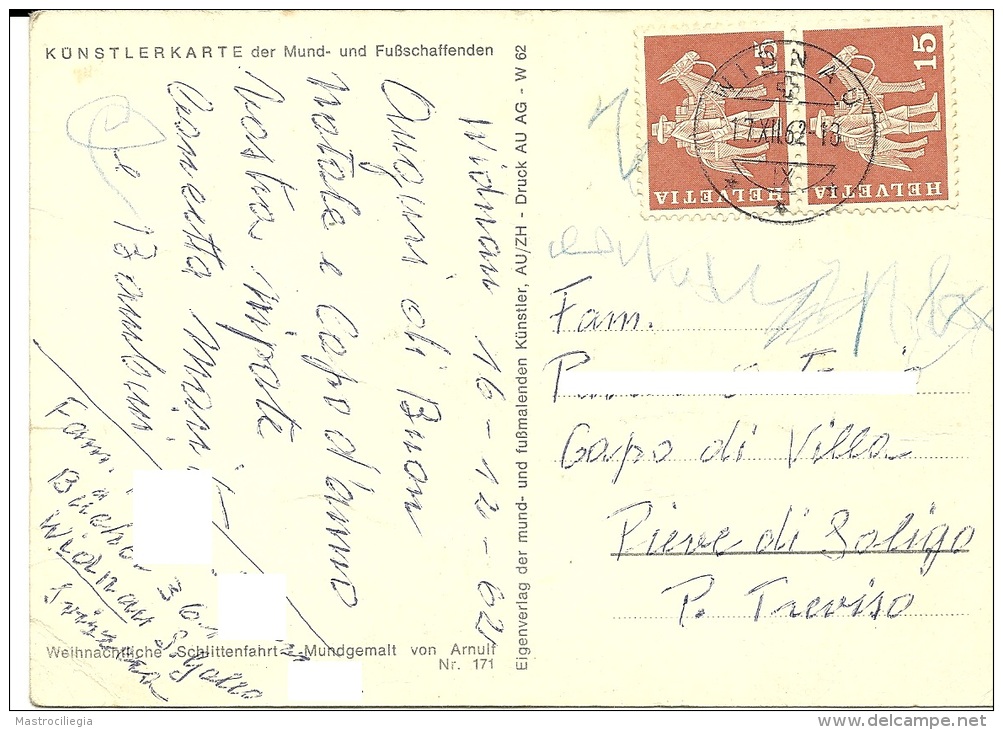 KÜNSTLERKARTE der Mund- und Fußschaffenden
Widnau 16-12-62
Auguri di Buon
Natale e Capo d'anno
Vostra nipote
Bambini
Fam.
Widnau S. Gallo
Svizzera
Weihnachtliche Schlittenfahrt - Mundgemalt von Arnulf
Nr. 171
Eigenverlag der mund- und fußmalenden Künstler, AU/ZH - Druck AU AG - W 62
15
HELVETIA
15
HELVETIA
WIDNAU
17.XII.62-18
Fam.
Capo di Villa
Pieve di Soligo
P. Treviso
Mastrociliegia
delcampe.net